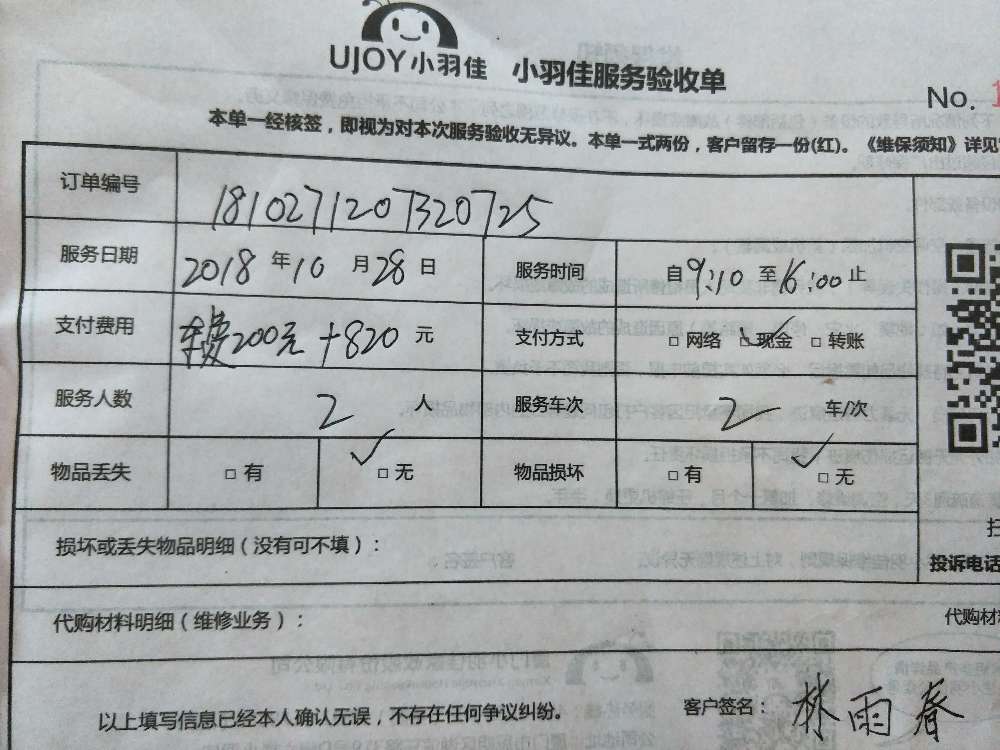 UJOY小羽佳 小羽佳服务验收单
No. 1
本单一经核签，即视为对本次服务验收无异议。本单一式两份，客户留存一份(红)。《维保须知》详见
订单编号 1810271207320725
服务日期 2018 年 10 月 28 日 服务时间 自 9:10 至 16:00 止
支付费用 200元 +820 元 支付方式 □ 网络 □ 现金 □ 转账
服务人数 2 人 服务车次 2 车/次
物品丢失 □ 有 □ 无 物品损坏 □ 有 □ 无
损坏或丢失物品明细（没有可不填）：
投诉电话
代购材料明细（维修业务）： 代购材
以上填写信息已经本人确认无误，不存在任何争议纠纷。 客户签名： 林雨春